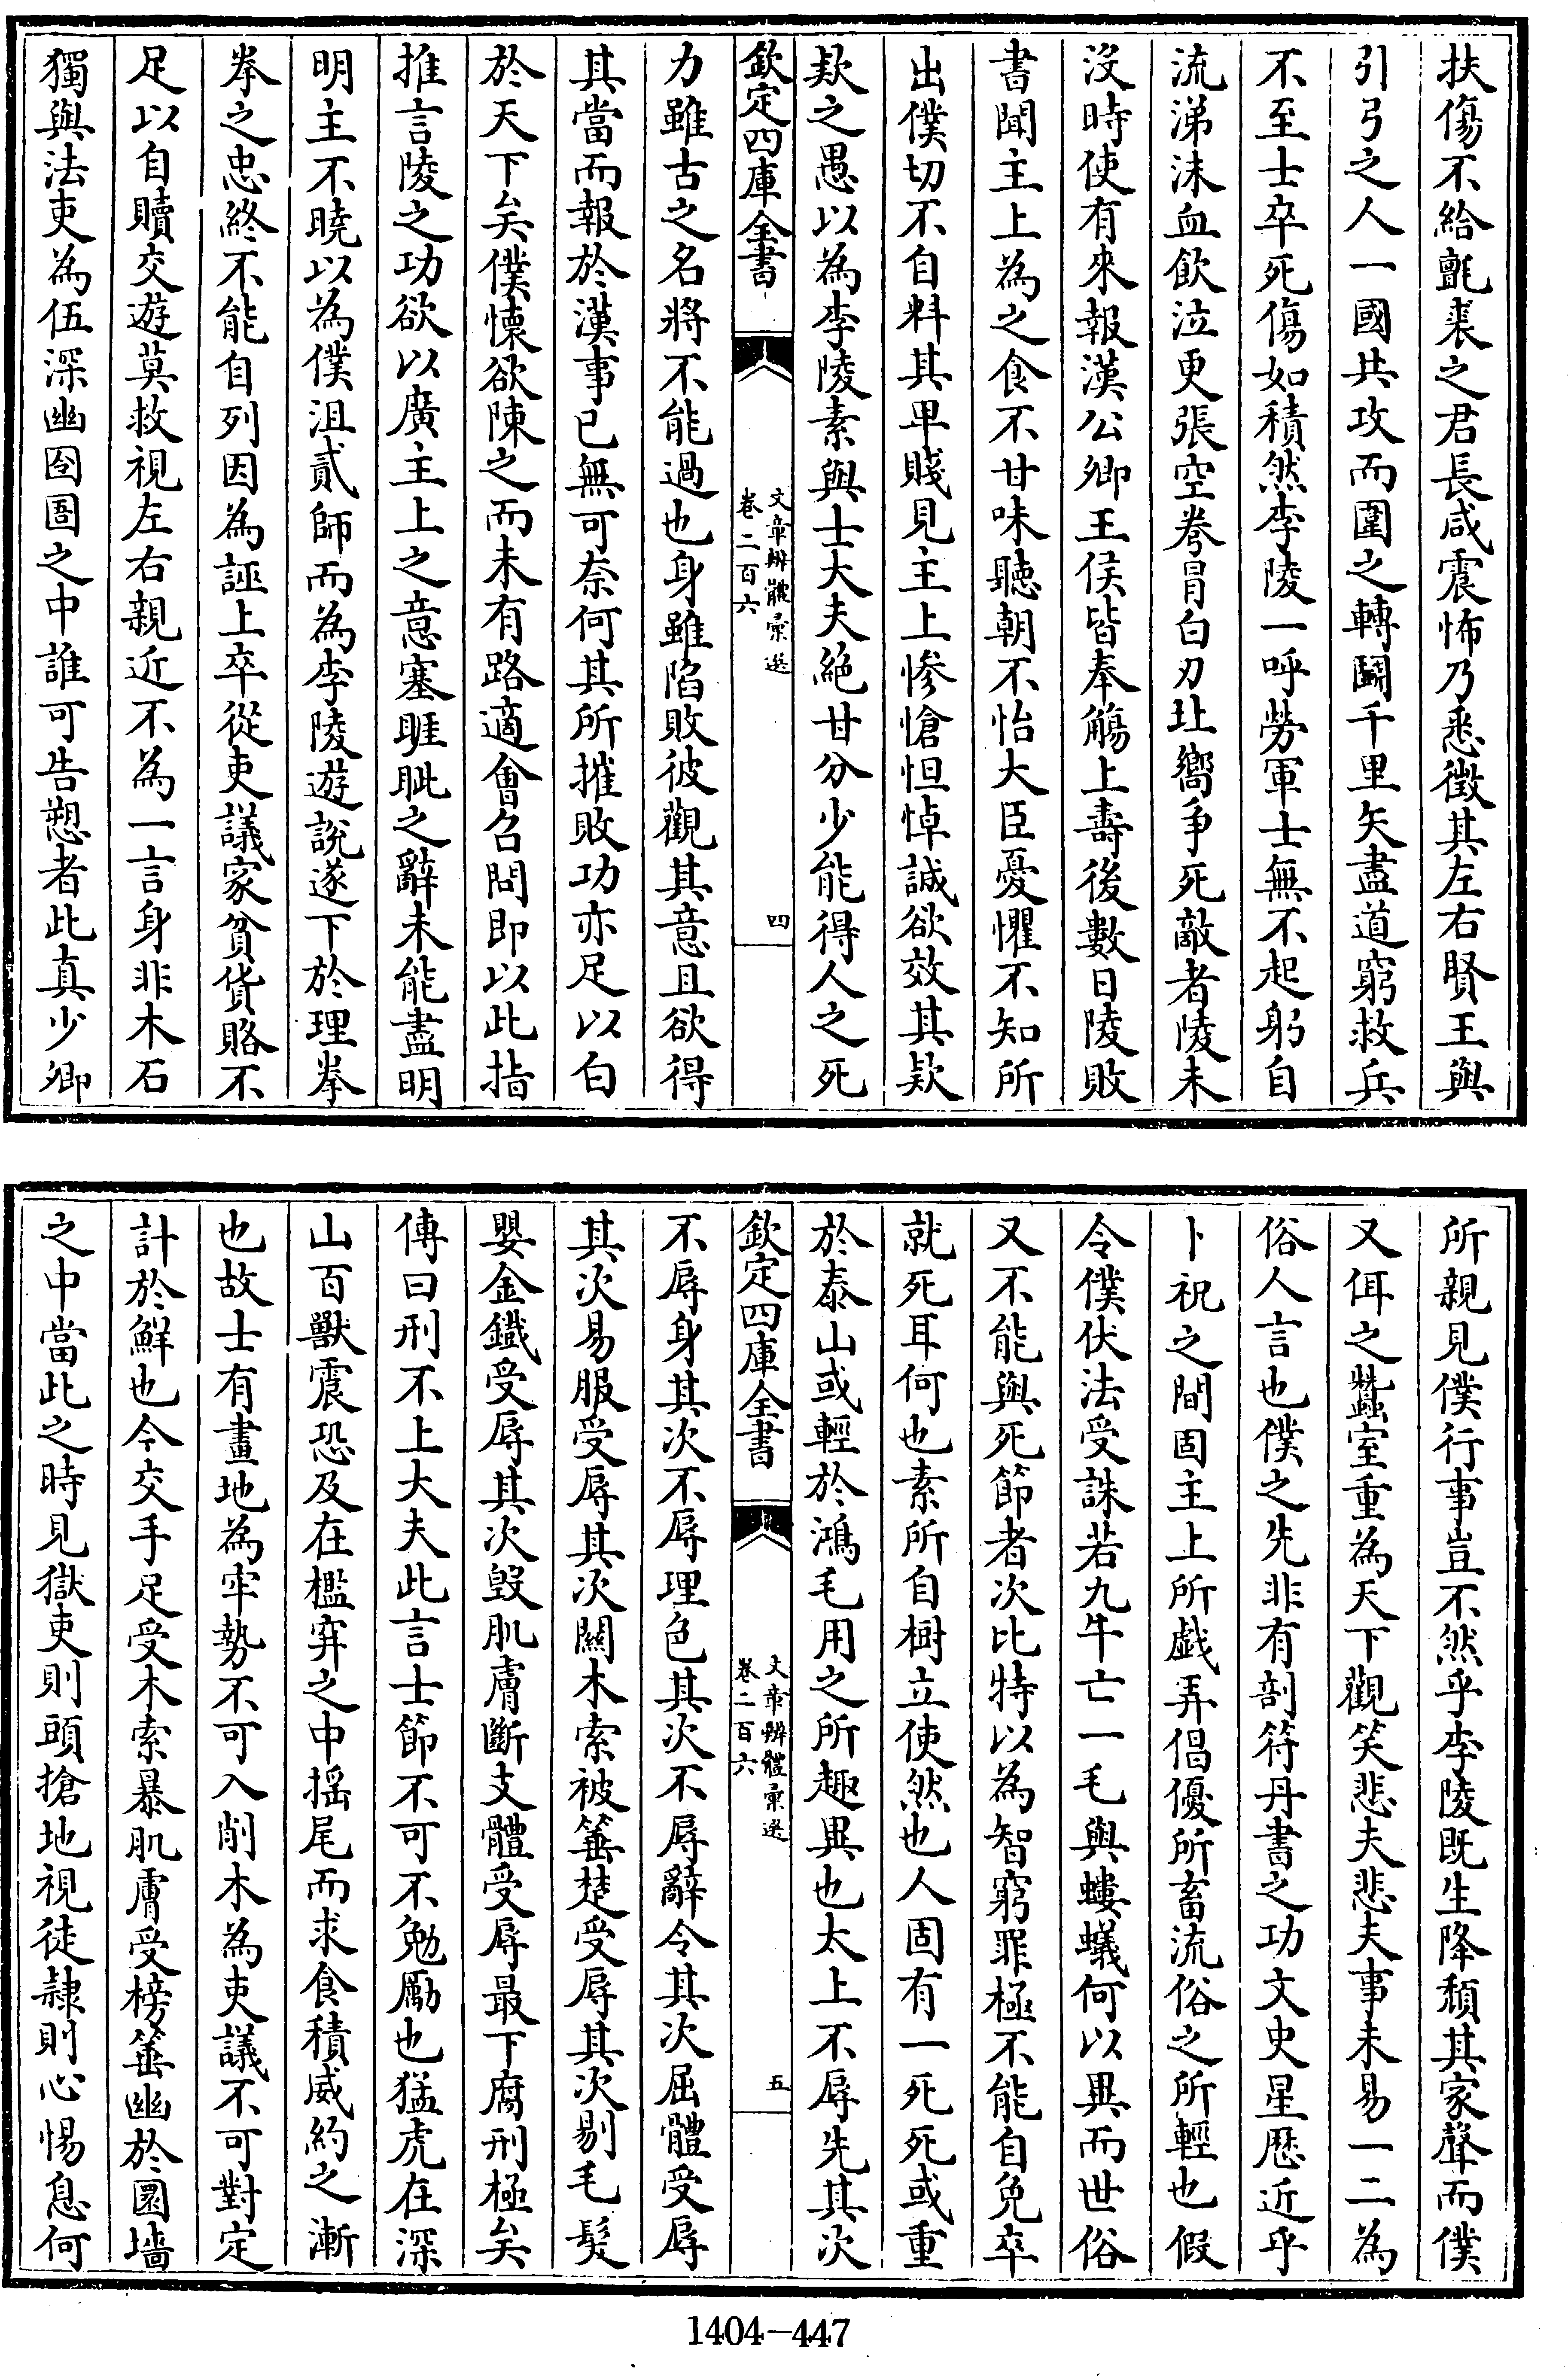 扶傷不給氈裘之君長咸震怖乃悉徴其左右賢王與
引弓之人一國共攻而圍之轉鬭千里矢盡道窮救兵
不至士卒死傷如積然李陵一呼勞軍士無不起躬自
流涕沬血飲泣更張空弮冐白刃北嚮爭死敵者陵未
沒時使有來報漢公卿王侯皆奉觴上壽後數日陵敗
書聞主上為之食不甘味聽朝不怡大臣憂懼不知所
出僕切不自料其卑賤見主上慘愴怛悼誠欲效其欵
欵之愚以為李陵素與士大夫絶甘分少能得人之死
欽定四庫全書
文章辨體彚選
卷二百六
四
力雖古之名將不能過也身雖陷敗彼觀其意且欲得
其當而報於漢事已無可奈何其所摧敗功亦足以白
於天下矣僕懷欲陳之而未有路適會召問即以此指
推言陵之功欲以廣主上之意塞睚眦之辭未能盡明
明主不曉以為僕沮貳師而為李陵遊說遂下於理拳
拳之忠終不能自列因為誣上卒從吏議家貧貨賂不
足以自贖交遊莫救視左右親近不為一言身非木石
獨與法吏為伍深幽囹圄之中誰可告愬者此真少卿
所親見僕行事豈不然乎李陵既生降頽其家聲而僕
又佴之蠶室重為天下觀笑悲夫悲夫事未易一二為
俗人言也僕之先非有剖符丹書之功文史星厯近乎
卜祝之間固主上所戯弄倡優所畜流俗之所輕也假
令僕伏法受誅若九牛亡一毛與螻蟻何以異而世俗
又不能與死節者次比特以為智窮罪極不能自免卒
就死耳何也素所自樹立使然也人固有一死死或重
於泰山或輕於鴻毛用之所趣異也太上不辱先其次
欽定四庫全書
文章辨體彚選
卷二百六
五
不辱身其次不辱理色其次不辱辭令其次屈體受辱
其次易服受辱其次關木索被箠楚受辱其次剔毛髮
嬰金鐵受辱其次毀肌膚斷支體受辱最下腐刑極矣
傳曰刑不上大夫此言士節不可不勉勵也猛虎在深
山百獸震恐及在檻穽之中揺尾而求食積威約之漸
也故士有畫地為牢勢不可入削木為吏議不可對定
計於鮮也今交手足受木索暴肌膚受榜箠幽於圜墻
之中當此之時見獄吏則頭搶地視徒隸則心惕息何
1404-447